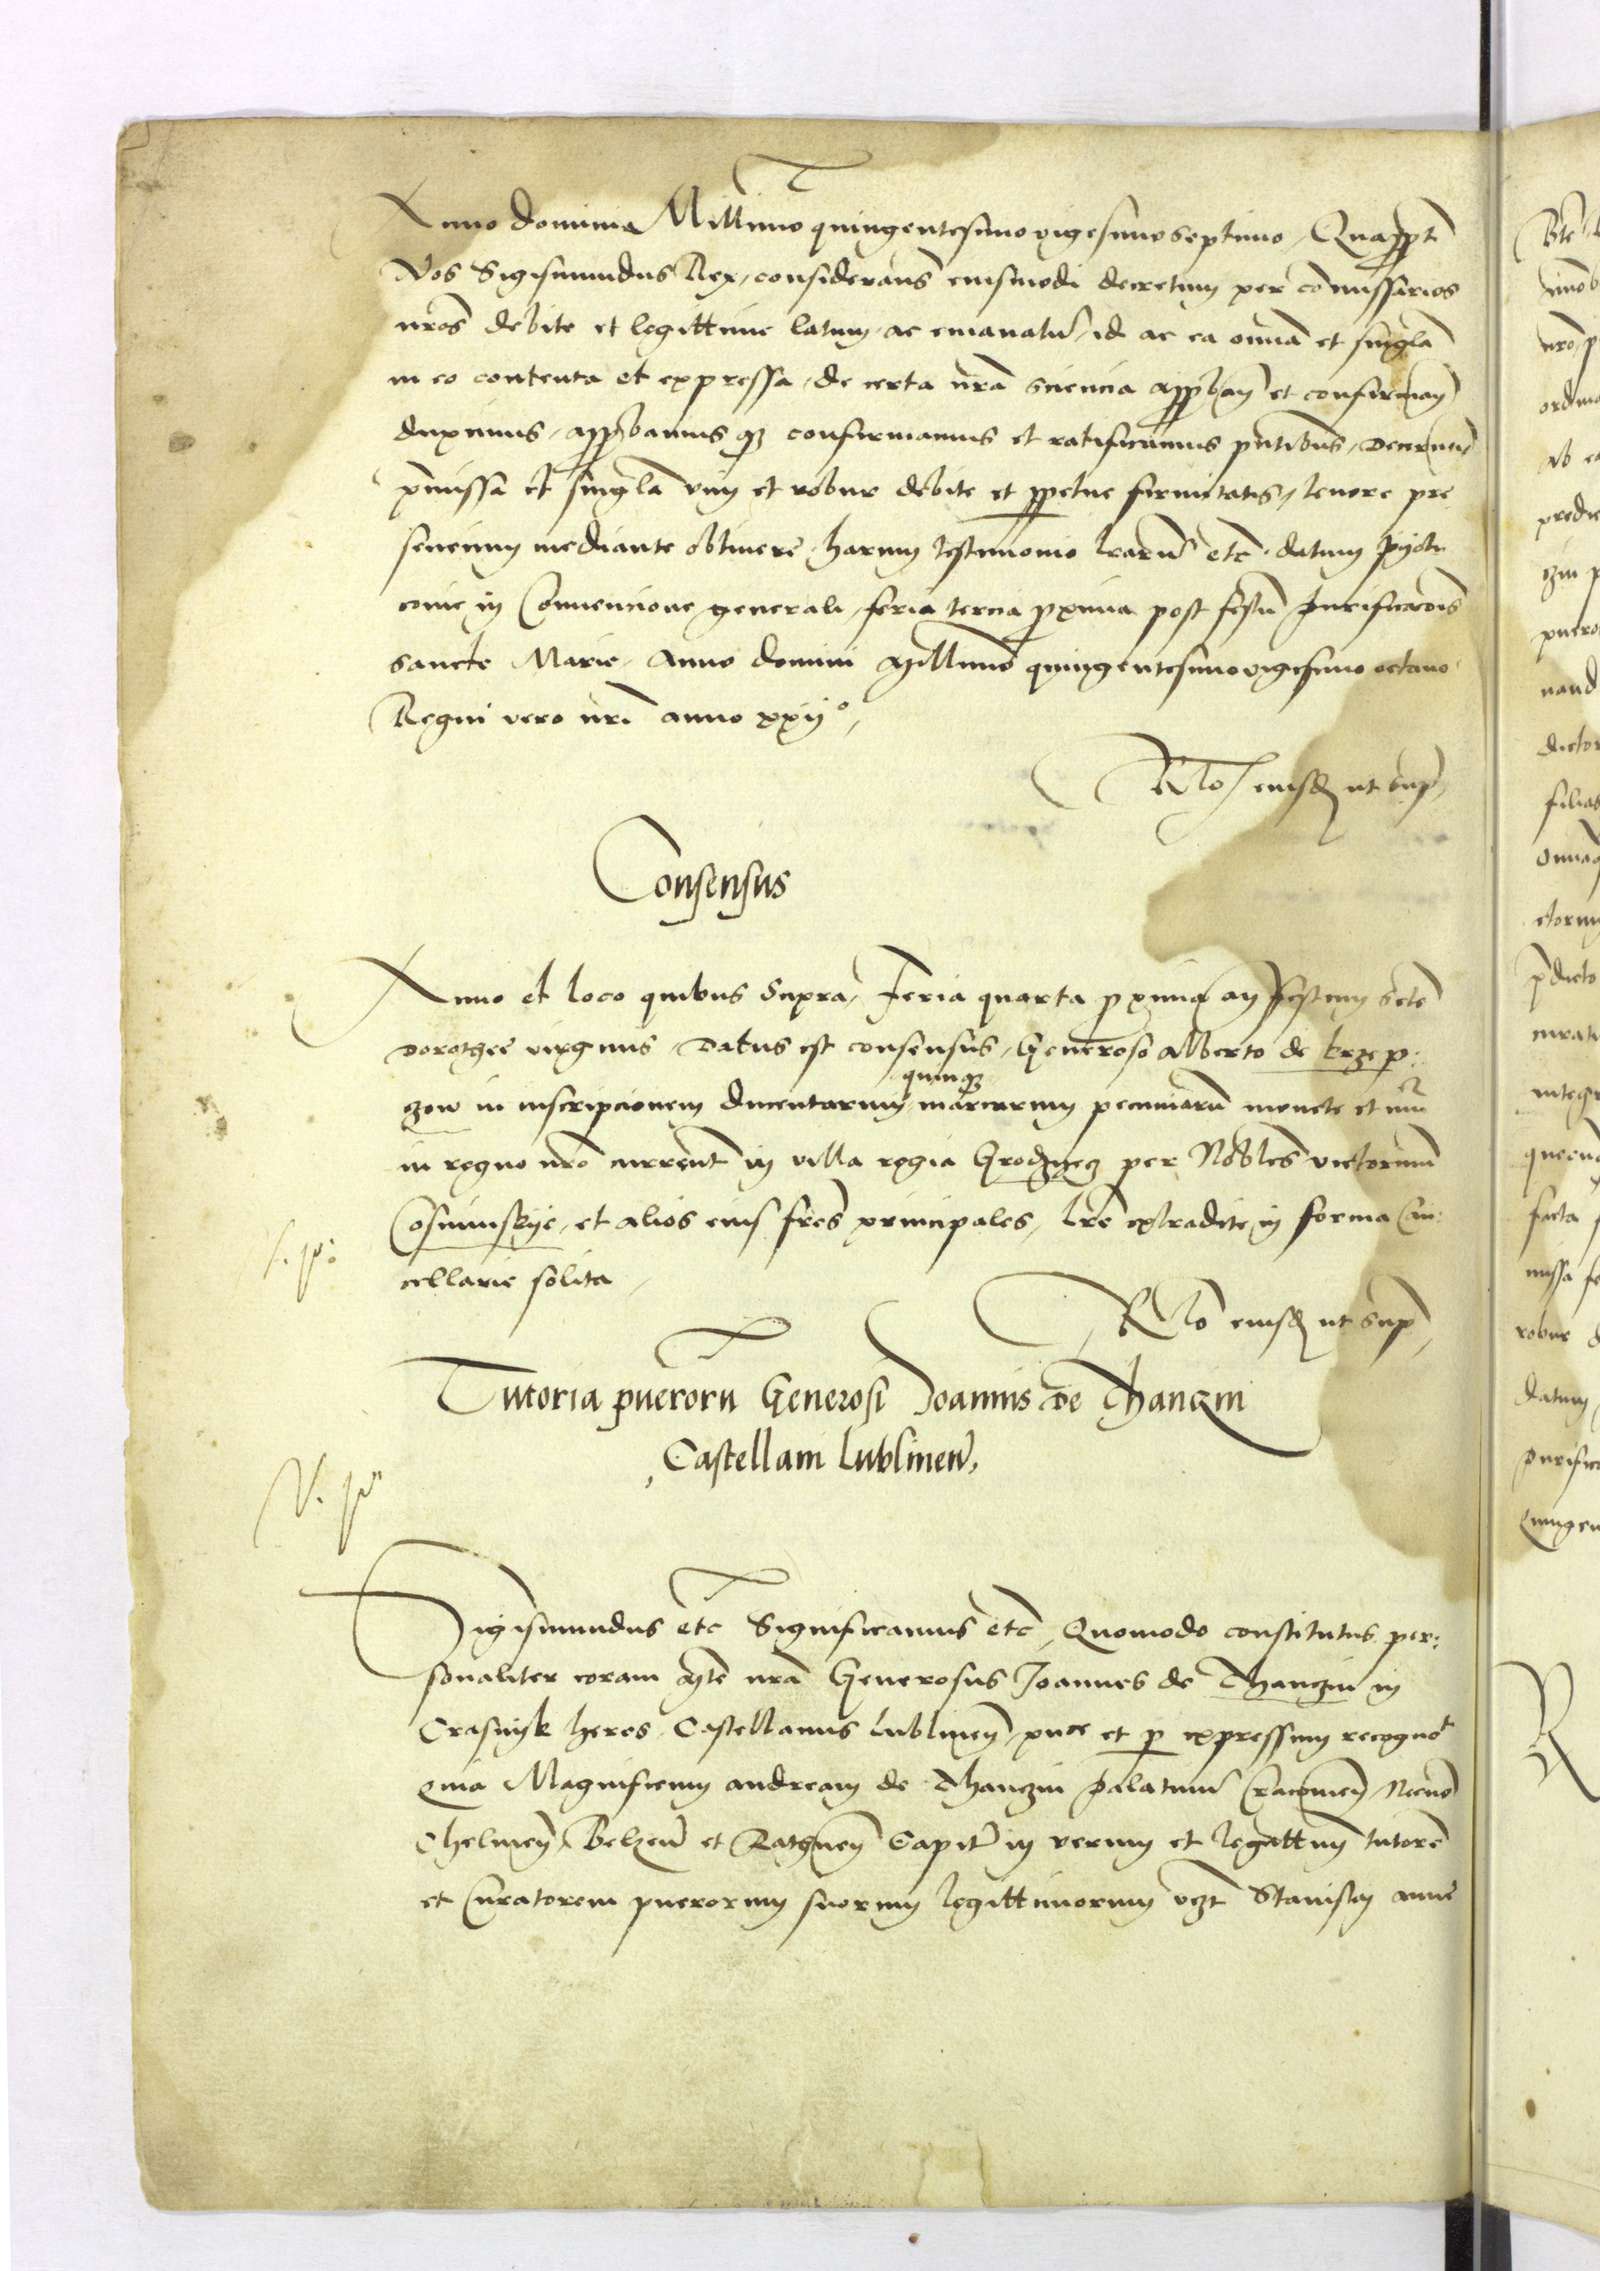 Anno domini Millimo quingentesimo vigesimo septimo, Quapropt
Nos Sigismundus Rex, considerans eiusmodi decretum per comissarios
nros debite et legittime latum ac emanatu, id ac ea omia et singla
in eo contenta et expressa, de certa nra sciencia approban et confirman
duximus, approbamus q3 confirmamus et ratificamus pntibus, Decernen
pmissa et singla vim et robur debite et ppetue firmitatis, tenore pre
sencium mediante obtinere, harum testimonio lraru etc. datum Pyotr
covie in Convencione generali, feria tercia proxima post festu Purificacois
sancte Marie, Anno domini Millimo quingentesimo vigesimo octavo
Regni vero nri anno xxij°,
Rlo eiusd ut sup,
Consensus
Anno et loco quibus supra, Feria quarta proxima an festum scte
Dorothee virginis, Datus est consensus, Generoso Alberto de krzep:
quinq3
zow in inscripcionem ducentarum, marcarum pecuniaru monete et nui
in regno nro current in villa regia Grodzyecz per Nobles victorinu
Cosminskye, et alios eius fres principales, lre extradite in forma Can:
cellarie solita,
Rlo eiusd ut sup,
Tutoria pueroru Generosi Joannis de Thanczin
Castellani Lublinen,
Sigismundus etc Significamus etc, Quomodo constitutus per:
sonaliter coram Mte nra Generosus Joannes de Thanczin in
Crasnyk heres, Castellanus Lublinen, et p expressum recognot
Quia Magnificum andream de Thanczin Palatinu Cracovien, Necno
Chelmen, Belzen et Rathnen Capit in verum et legittimum tutore
et Curatorem puerorum suorum legittimorum vzt Stanislai anne